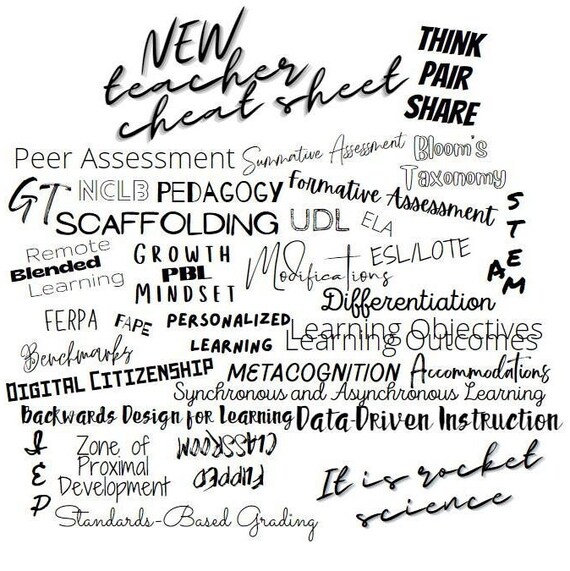 NEW
teacher
cheat sheet
THINK
PAIR
SHARE
Peer Assessment
Summative Assessment
Bloom's
Taxonomy
GT
NCLB
PEDAGOGY
Formative Assessment
STEAM
SCAFFOLDING
UDL
ELA
Remote
Blended
Learning
GROWTH
MINDSET
PBL
Modifications
ESL/LOTE
Differentiation
FERPA
FAPE
PERSONALIZED
LEARNING
Learning Objectives
Learning Outcomes
Benchmarks
DIGITAL CITIZENSHIP
METACOGNITION
Accommodations
Synchronous and Asynchronous Learning
Backwards Design for Learning
Data-Driven Instruction
IEP
Zone of
Proximal
Development
FLIPPED
CLASSROOM
It is rocket
science
Standards-Based Grading